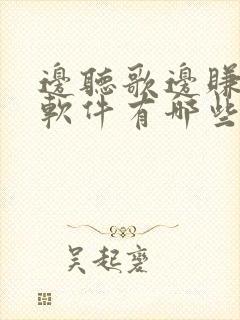 邊聽歌邊賺
軟件有哪些
吴起霆